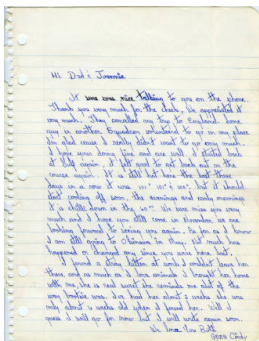 Hi Dad & Jeannie
It was nice talking to you on the phone.
Thank you very much for the check, we appreciated it
very much. They cancelled my trip to England. Some
guy in another Squadron volunteered to go in my place
I'm glad cause I really didn't want to go very much.
I hope your doing fine and are well. I started back
at work again. It felt good to get back out on the
course again. It is still hot here the last three
days in a row it was 111° 110° & 110°, but it should
start cooling off soon, the evenings and early mornings
much and I hope you still come in November, we are
looking forward to seeing you again. As far as I know
I am still going to Okinawa in May. Not much has
happened or changed any since you were here last.
I found a stray kitten at work I couldn't leave her
there, and as much as I love animals I brought her home
with me, she is real sweet she reminds me alot of the
only about 6 weeks old when I found her. Well I
guess I will go for now but I will write again soon.
We Love You Both